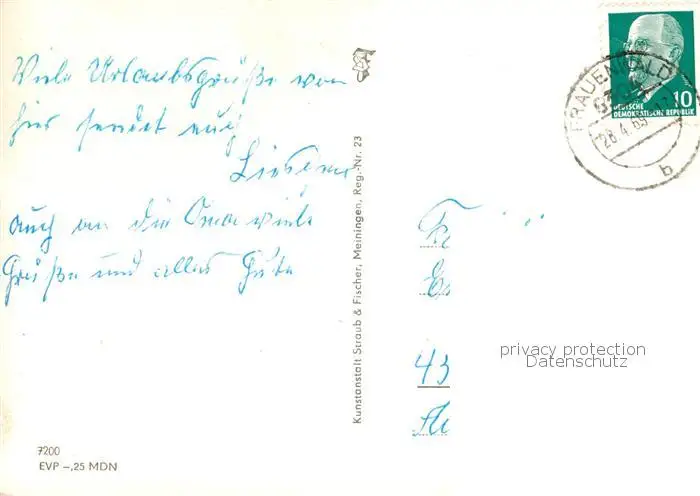 Viele Urlaubsgrüße von
hier sendet euch
auch an die Oma viele
Grüße und alles Gute
7200
EVP –,25 MDN
Kunstanstalt Straub & Fischer, Meiningen, Reg.-Nr. 23
FRAUENWALD
28.4.69
b
10
DEUTSCHE
DEMOKRATISCHE REPUBLIK
43
privacy protection
Datenschutz